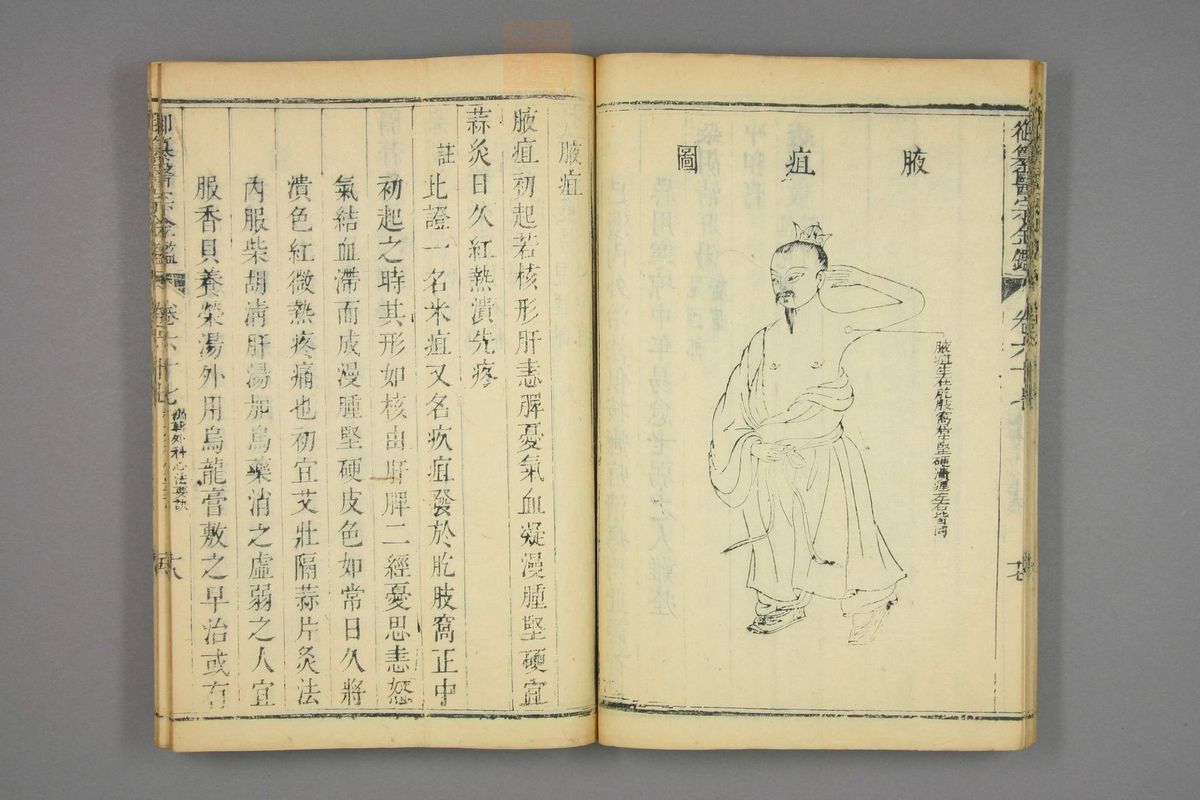 腋疽圖
腋疽生在肐肢窩初堅硬潰遲左右皆同
御纂醫宗金鑑
卷六十七
腋疽
腋疽初起若核形肝恚脾憂氣血凝漫腫堅硬宜
蒜灸日久紅熱潰先疼
註此證一名米疽又名疚疽發於肐肢窩正中
初起之時其形如核由肝脾二經憂思恚怒
氣結血滯而成漫腫堅硬皮色如常日久將
潰色紅微熱疼痛也初宜艾壯隔蒜片灸法
內服柴胡清肝湯加烏藥消之虛弱之人宜
服香貝養榮湯外用烏龍膏敷之早治或有
御纂醫宗金鑑
卷六十七
編輯外科心法要訣